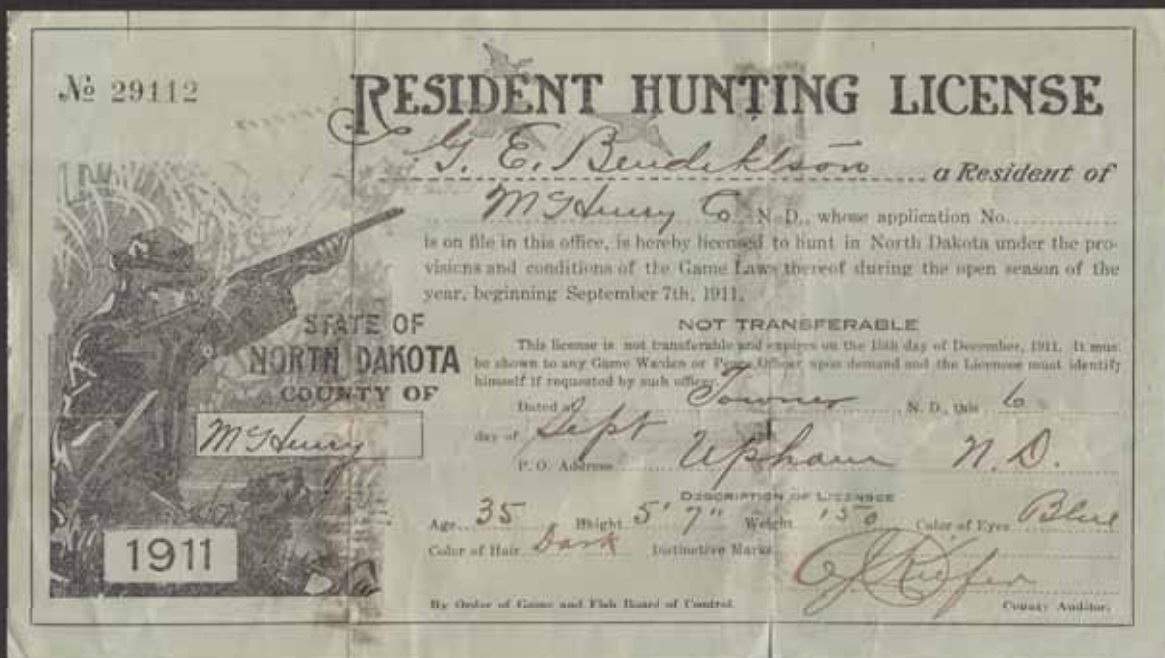 № 29112
RESIDENT HUNTING LICENSE
G. E. Bendiktson a Resident of
McHenry Co. N. D., whose application No.
is on file in this office, is hereby licensed to hunt in North Dakota under the pro-
visions and conditions of the Game Laws thereof during the open season of the
year, beginning September 7th, 1911.
STATE OF
NORTH DAKOTA
COUNTY OF
McHenry
1911
NOT TRANSFERABLE
This license is not transferable and expires on the 15th day of December, 1911. It must
be shown to any Game Warden or Peace Officer upon demand and the Licensee must identify
himself if requested by such officer.
Dated at Towner N. D., this 6
day of Sept
P. O. Address Upham N. D.
DESCRIPTION OF LICENSEE
Age 35 Height 5' 7" Weight 150 Color of Eyes Blue
Color of Hair Dark Distinctive Marks
By Order of Game and Fish Board of Control. County Auditor.